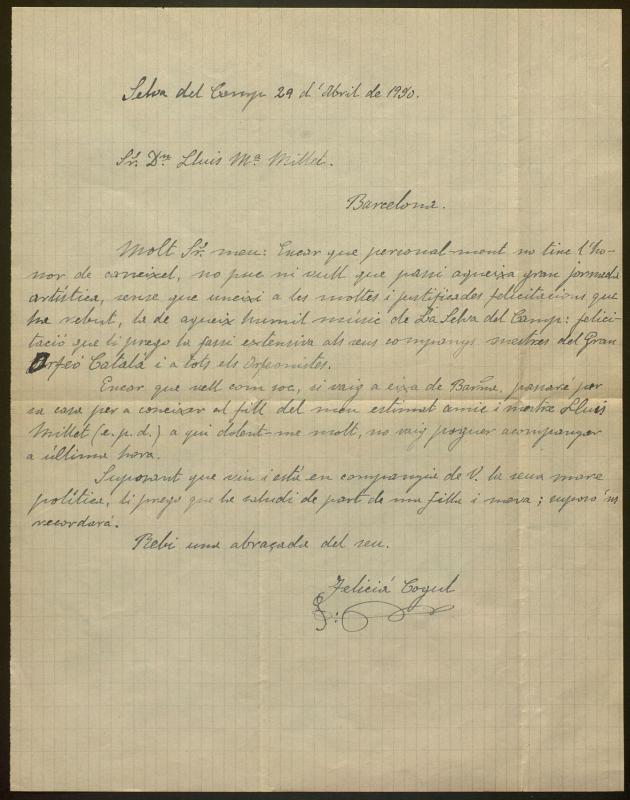 Selva del Camp 29 d'Abril de 1950.
Sr. Dn. Lluis Mª Millet.
Barcelona.
Molt Sr. meu: Encar que personal-ment no tinc l'ho-
nor de coneixel, no puc ni vull que passi aquexa gran jornada
artística, sense que uneixi a les moltes i justificades felicitacions que
ha rebut, la de aqueix humil músic de La Selva del Camp: felici-
tació que li prego la fassi extensiva als seus companys mestres del Gran
Orfeó Catalá i a tots els Orfeonistes.
Encar que vell com soc, si vaig a eixa de Barna, passaré per
sa casa per a coneixer al fill del meu estimat amic i mestre Lluis
Millet (e.p.d.) a qui dolent-me molt, no vaig poguer acompanyar
a última hora.
Suposant que viu i está en companyia de V. la seua mare
política, li prego que la saludi de part de ma filla i meva; suposo 'ns
recordará.
Rebi una abraçada del seu.
Feliciá Cogul